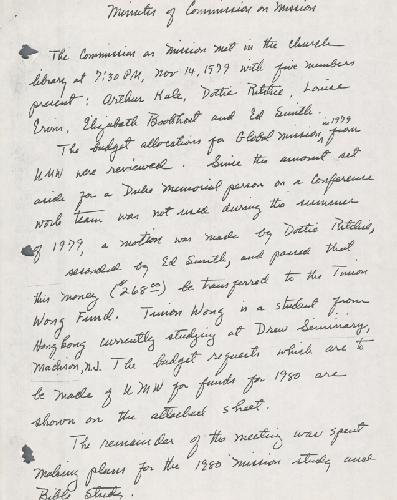 Minutes of Commission on Mission
The Commission on Mission met in the church
library at 7:30 P.M., Nov 14, 1979 with five members
present: Arthur Kale, Dottie Ritchie, Louise
Erwin, Elizabeth Bookhout and Ed Smith.
The budget allocations for Global Mission, 1979 from
UMW were reviewed. Since the amount set
aside for a Duke Memorial person on a Conference
work team was not used during the summer
of 1979, a motion was made by Dottie Ritchie,
seconded by Ed Smith, and passed that
this money ($268.00) be transferred to the
Wong Fund. Wong is a student from
Hong Kong currently studying at Drew Seminary,
Madison, N.J. The budget requests which are to
be made of UMW for funds for 1980 are
shown on the attached sheet.
The remainder of the meeting was spent
making plans for the 1980 mission study and
Bible Study.